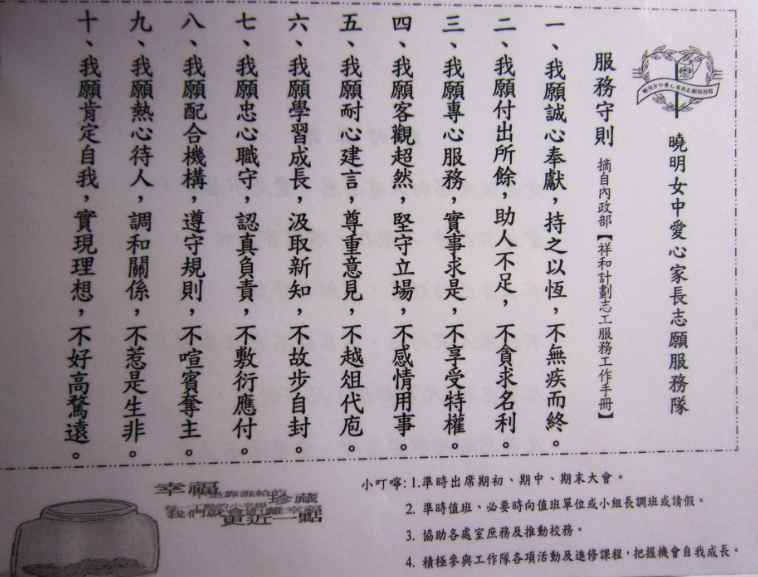 曉明女中愛心家長志願服務隊
服務守則 摘自內政部【祥和計劃志工服務工作手冊】
一、我願誠心奉獻，持之以恆，不無疾而終。
二、我願付出所餘，助人不足，不貪求名利。
三、我願專心服務，實事求是，不享受特權。
四、我願客觀超然，堅守立場，不感情用事。
五、我願耐心建言，尊重意見，不越俎代庖。
六、我願學習成長，汲取新知，不故步自封。
七、我願忠心職守，認真負責，不敷衍應付。
八、我願配合機構，遵守規則，不喧賓奪主。
九、我願熱心待人，調和關係，不惹是生非。
十、我願肯定自我，實現理想，不好高騖遠。
幸福
珍藏
更近一點
小叮嚀：1.準時出席期初、期中、期末大會。
2. 準時值班、必要時向值班單位或小組長調班或請假。
3. 協助各處室庶務及推動校務。
4. 積極參與工作隊各項活動及進修課程，把握機會自我成長。